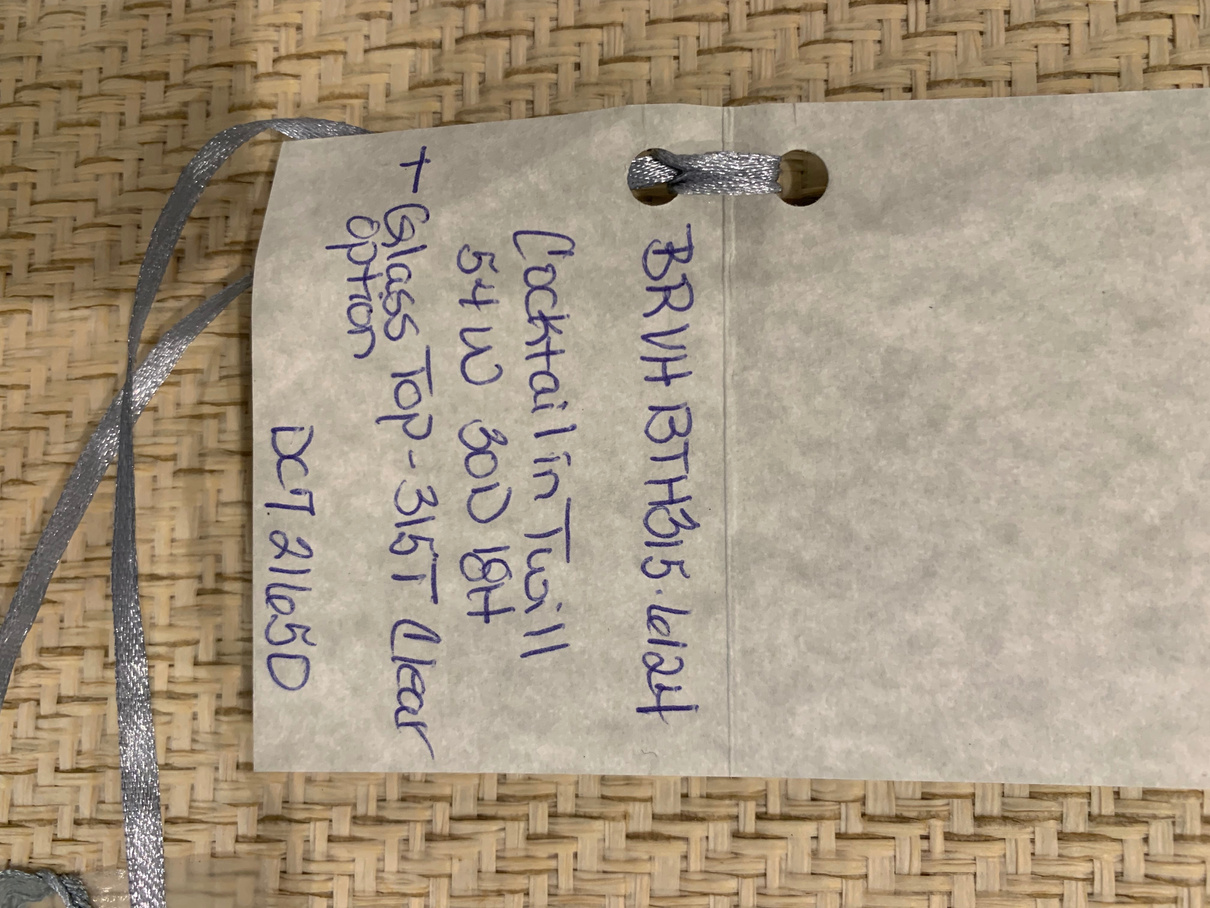 BRVH BTH315.6124
Cocktail in Twill
54W 30D 18H
+ Glass Top - 315T Clear
option
DC7.21650